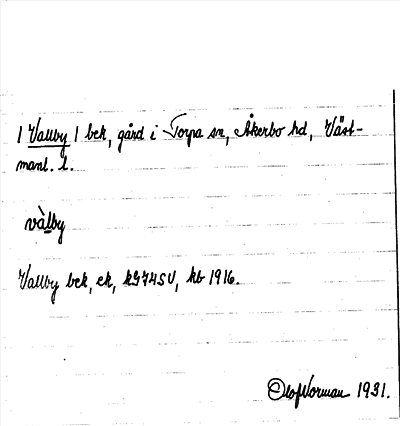 / Vallby / bek, gård i Torpa sn, Åkerbo hd, Väst-
manl. l.
vàlby
Vallby bek, ek, kG74SV, kb 1916.
Olof Norman 1931.